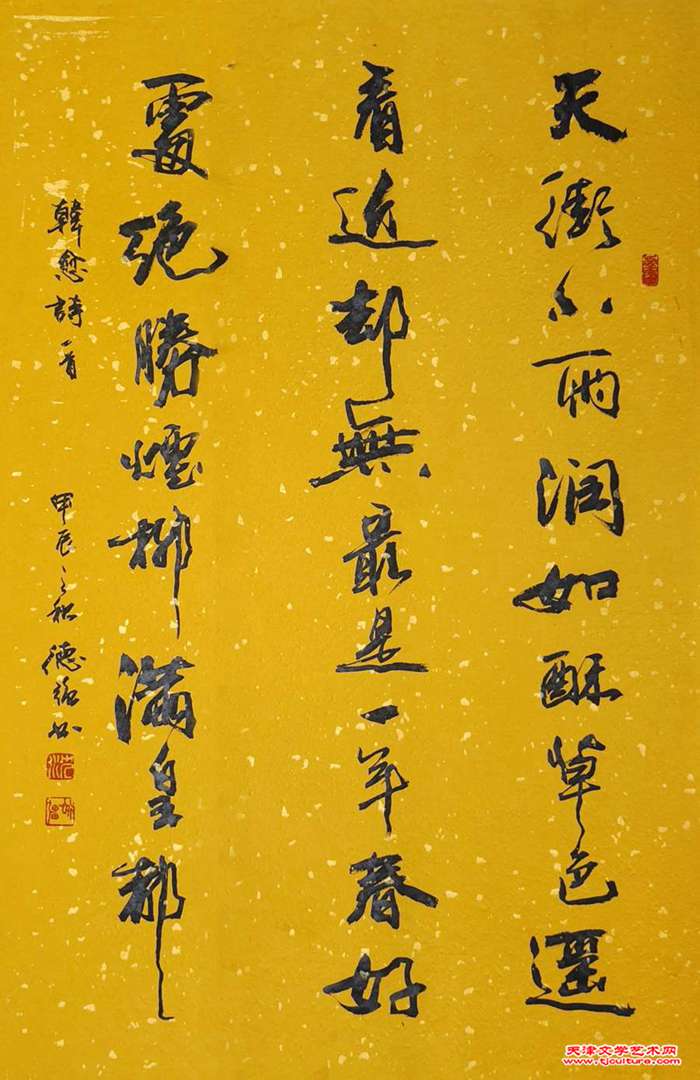 天街小雨润如酥草色遥
看近却無最是一年春好
處絶勝煙柳滿皇都
韓愈詩一首
甲辰之秋德强书
天津文学艺术网
www.tjculture.com